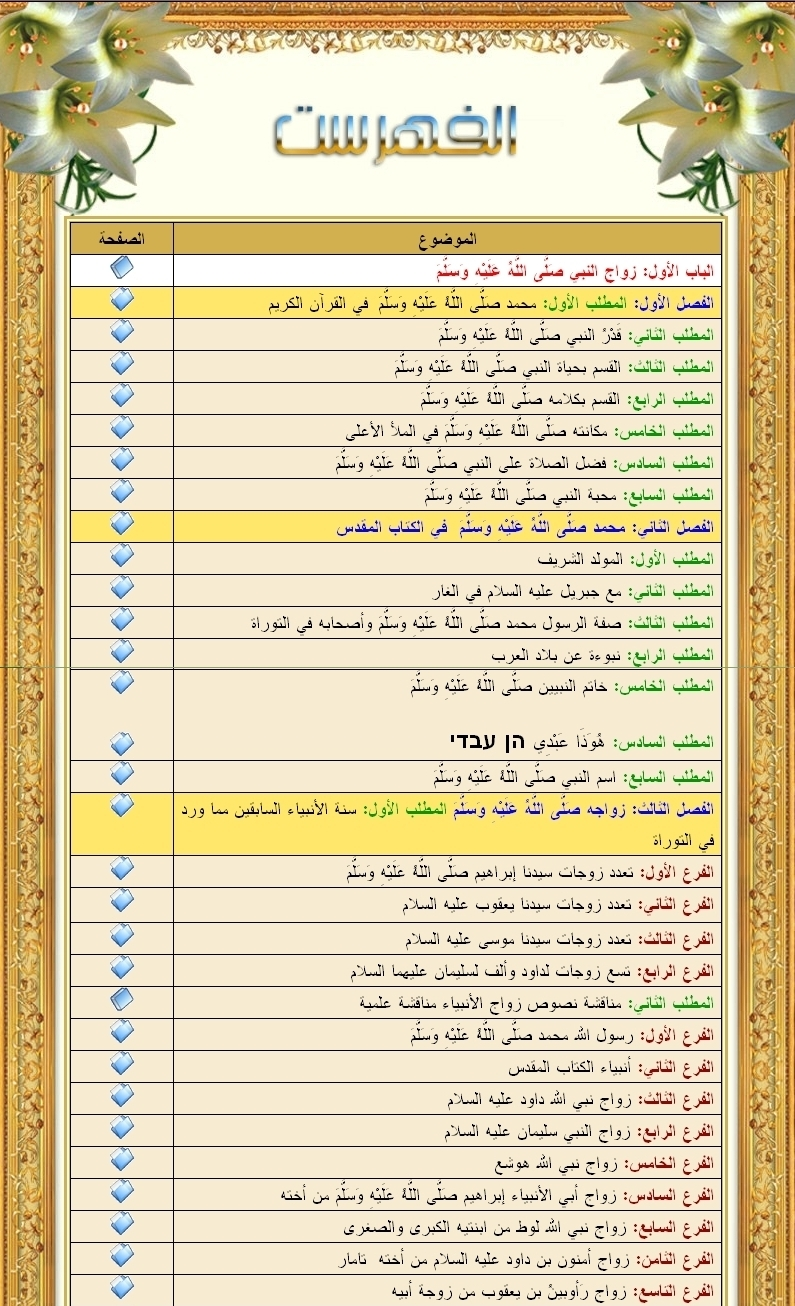 الفهرست
الموضوع الصفحة
الباب الأول: زواج النبي صَلَّى اللَّهُ عَلَيْهِ وَسَلَّمَ
الفصل الأول: المطلب الأول: محمد صَلَّى اللَّهُ عَلَيْهِ وَسَلَّمَ في القرآن الكريم
المطلب الثاني: قَدْرُ النبي صَلَّى اللَّهُ عَلَيْهِ وَسَلَّمَ
المطلب الثالث: القسم بحياة النبي صَلَّى اللَّهُ عَلَيْهِ وَسَلَّمَ
المطلب الرابع: القسم بكلامه صَلَّى اللَّهُ عَلَيْهِ وَسَلَّمَ
المطلب الخامس: مكانته صَلَّى اللَّهُ عَلَيْهِ وَسَلَّمَ في الملأ الأعلى
المطلب السادس: فضل الصلاة على النبي صَلَّى اللَّهُ عَلَيْهِ وَسَلَّمَ
المطلب السابع: محبة النبي صَلَّى اللَّهُ عَلَيْهِ وَسَلَّمَ
الفصل الثاني: محمد صَلَّى اللَّهُ عَلَيْهِ وَسَلَّمَ في الكتاب المقدس
المطلب الأول: المولد الشريف
المطلب الثاني: مع جبريل عليه السلام في الغار
المطلب الثالث: صفة الرسول محمد صَلَّى اللَّهُ عَلَيْهِ وَسَلَّمَ وأصحابه في التوراة
المطلب الرابع: نبوءة عن بلاد العرب
المطلب الخامس: خاتم النبيين صَلَّى اللَّهُ عَلَيْهِ وَسَلَّمَ
المطلب السادس: هُوَذَا عَبْدِي הן עבדי
المطلب السابع: اسم النبي صَلَّى اللَّهُ عَلَيْهِ وَسَلَّمَ
الفصل الثالث: زواجه صَلَّى اللَّهُ عَلَيْهِ وَسَلَّمَ المطلب الأول: سنة الأنبياء السابقين مما ورد
في التوراة
الفرع الأول: تعدد زوجات سيدنا إبراهيم صَلَّى اللَّهُ عَلَيْهِ وَسَلَّمَ
الفرع الثاني: تعدد زوجات سيدنا يعقوب عليه السلام
الفرع الثالث: تعدد زوجات سيدنا موسى عليه السلام
الفرع الرابع: تسع زوجات لداود وألف لسليمان عليهما السلام
المطلب الثاني: مناقشة نصوص زواج الأنبياء مناقشة علمية
الفرع الأول: رسول الله محمد صَلَّى اللَّهُ عَلَيْهِ وَسَلَّمَ
الفرع الثاني: أنبياء الكتاب المقدس
الفرع الثالث: زواج نبي الله داود عليه السلام
الفرع الرابع: زواج النبي سليمان عليه السلام
الفرع الخامس: زواج نبي الله هوشع
الفرع السادس: زواج أبي الأنبياء إبراهيم صَلَّى اللَّهُ عَلَيْهِ وَسَلَّمَ من أخته
الفرع السابع: زواج نبي الله لوط من ابنتيه الكبرى والصغرى
الفرع الثامن: زواج أمنون بن داود عليه السلام من أخته تامار
الفرع التاسع: زواج رَأوبينُ بن يعقوب من زوجة أبيه